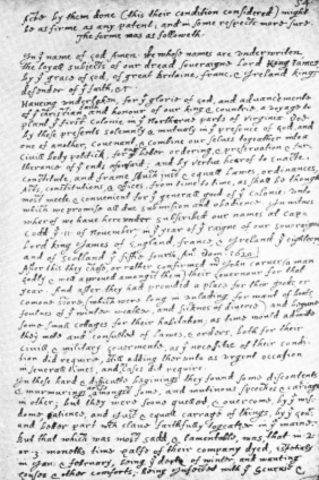 54
Acte by them done (this their condition considered) might
be as firme as any patent, and in some respects more sure.
The forme was as followeth.
In yᵉ name of god Amen. We whose names are underwriten,
the loyall subjects of our dread soveraigne Lord King James
by yᵉ grace of god, of great Britaine, franc, & Ireland king,
defender of yᵉ faith, &c
Haveing undertaken, for yᵉ glorie of god, and advancemente
of yᵉ christian faith and honour of our king & countrie, a voyage to
plant yᵉ first colonie in yᵉ Northerne parts of Virginia. Doe
by these presents solemnly & mutualy in yᵉ presence of god, and
one of another, covenant, & combine our selves togeather into a
civill body politick; for our better ordering, & preservation & fur=
therance of yᵉ ends aforesaid; and by vertue hearof to enacte,
constitute, and frame such just & equall Lawes, ordinances,
Acts, constitutions, & offices, from time to time, as shall be thought
most meete & convenient for yᵉ generall good of yᵉ colonie: unto
which we promise all due submission and obedience. In witnes
wherof we have hereunder subscribed our names at Cap=
Codd yᵉ .11. of November, in yᵉ year of yᵉ raigne of our soveraigne
Lord king James of England, france, & Ireland yᵉ eighteenth
and of Scotland yᵉ fiftie fourth. Anᵒ: Dom. 1620.
After this they chose, or rather confirmed mʳ John Carver (a man
godly & well approved amongst them) their Governour for that
year. And after they had provided a place for their goods, or
comone store, (which were long in unlading for want of boats,
foulnes of yᵉ winter weather, and sicknes of diverce) and begune
some small cottages for their habitation; as time would admitte
they mette and consulted of lawes, & orders, both for their
civill & military Govermente, as yᵉ necessitie of their condi-
tion did require, still adding therunto as urgent occasion
in severall times, and as cases did require.
In these hard & difficulte beginings they found some discontents
& murmurings amongst some, and mutinous speeches & carriags
in other; but they were soone quelled, & overcome, by yᵉ wis-
dome, patience, and just & equall carrage of things, by yᵉ Govʳ
and better part wᶜʰ clave faithfully togeather in yᵉ maine.
But that which was most sadd, & lamentable, was, that in 2.
or 3. moneths time halfe of their company dyed, espetialy
in Jan: & february, being yᵉ depth of winter, and wanting
houses & other comforts; being infected with yᵉ scurvie &